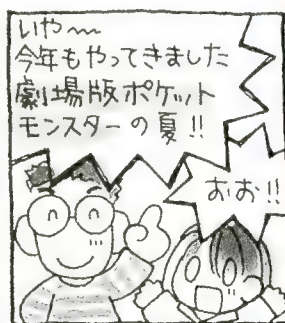 いや〜
今年もやってきました
劇場版ポケット
モンスターの夏!!
おお!!